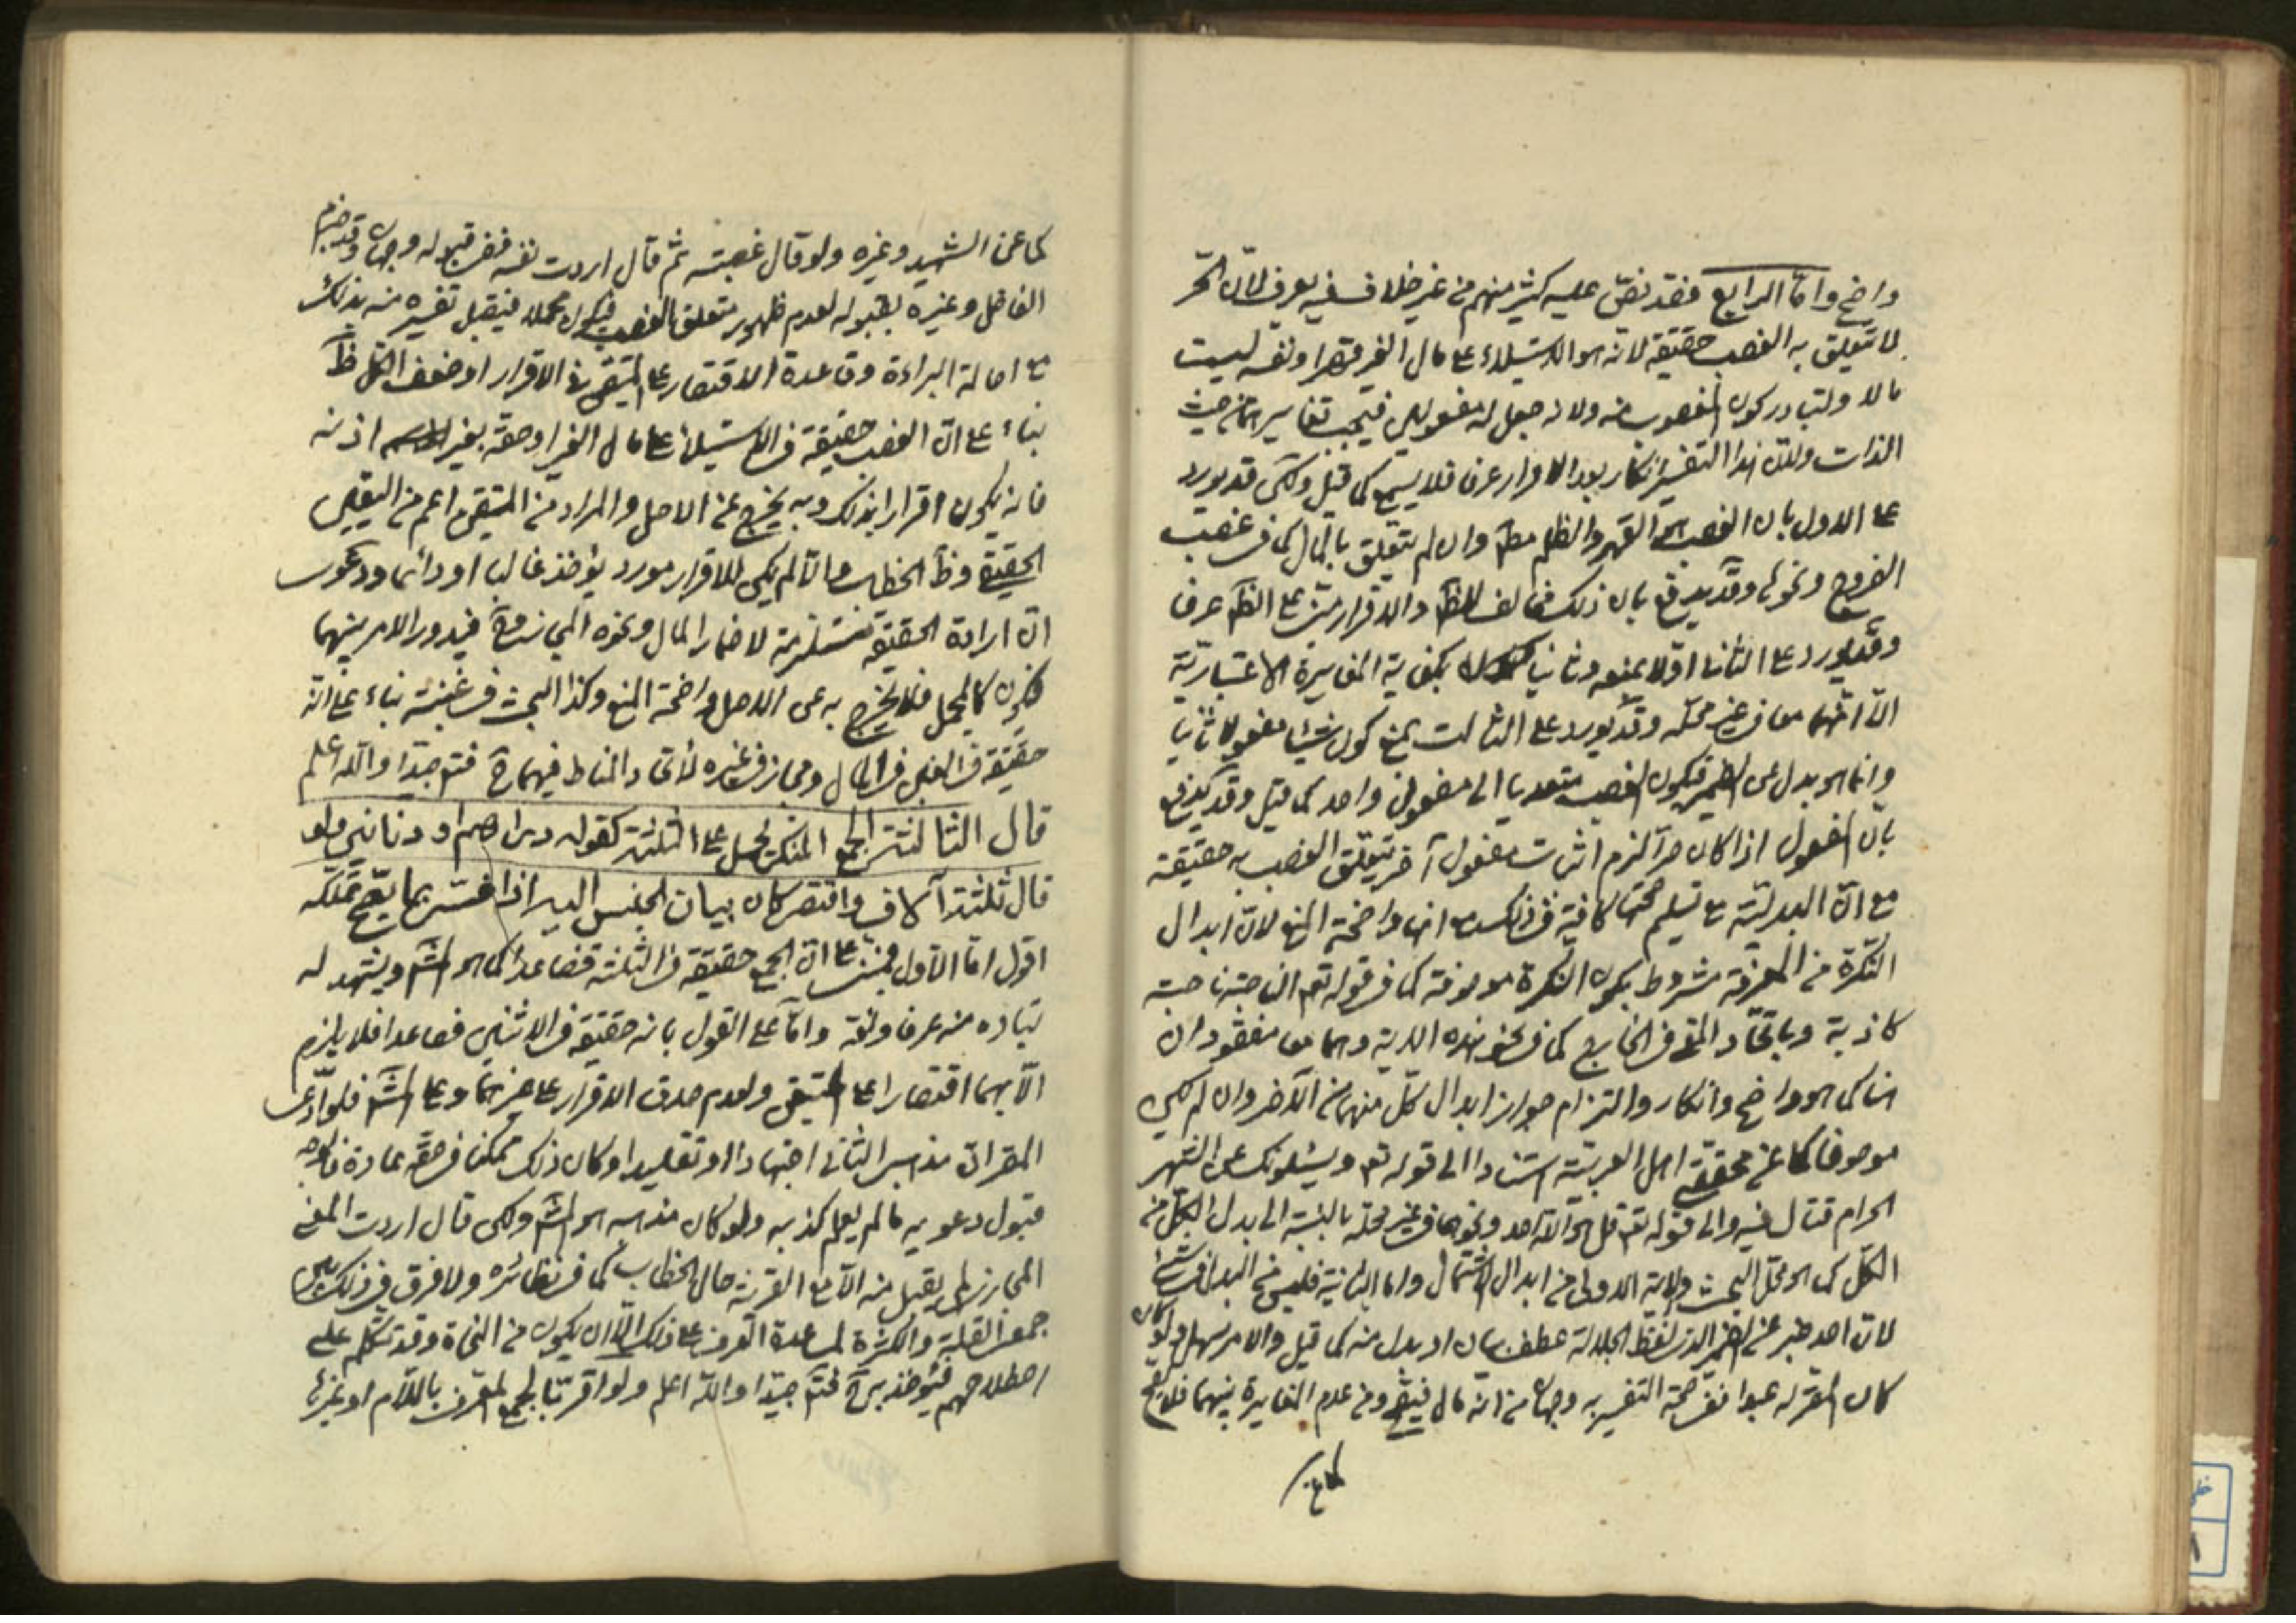 واضح واما الرابع فقد نصّ عليه كثير منهم من غير خلاف فيه يعرف لانّ الحر
لا يتعلق به الغصب حقيقة لانه هو الاستيلاء على مال الغير قهرا ونفسه ليست
مالا ولتبادر كون المغصوب منه ولانه جعل له مفعولين فيجب تغايرهما من حيث
الذات ولان هذا التفسير انكار بعد الاقرار عرفا فلا يسمع كما قيل ولكن قد يورد
على الاول بان الغصب هو القهر والظلم مط وان لم يتعلق بالمال كما في غصب
الفروج ونحوها وقد يدفع بان ذلك مخالف للظ والاقرار مبني على الظ عرفا
وقد يورد على الثانى اولا بمنعه وثانيا بكفاية المغايرة الاعتبارية
الا انهما معا في غير محله وقد يورد على الثالث بمنع كون شيئا مفعولا ثانيا
وانما هو بدل عن الضمير فيكون الغصب متعديا الى مفعول واحد كما قيل وقد يدفع
بان المفعول اذا كان حرا لزم اثبات مفعول آخر يتعلق الغصب به حقيقة
مع ان البدلية مع تسليم صحتها كافية في ذلك مع انها واضحة المنع لان ابدال
النكرة من المعرفة مشروط بكون النكرة موصوفة كما في قوله تع الناصية ناصية
كاذبة وباتحاد المعنى في الخارج كما في نحو هذه الاية وهما معا مفقودان
هنا كما هو واضح وانكاره والتزام جواز ابدال كل منهما من الآخر وان لم يكن
موصوفا كما عن محققي اهل العربية استنادا الى قوله تع ويسئلونك عن الشهر
الحرام قتال فيه والى قوله تع قل هو الله احد ونحوها في غير محله بالنسبة الى بدل الكل من
الكل كما هو محل البحث ولاية الاولى من ابدال الاشتمال واما الثانية فليس من البدل في شئ
لان احد خبر عن الضمير الذي لفظ الجلالة عطف بيان او بدل منه كما قيل والامر سهل ولو كان
كان المقر له عبدا ففي صحة التفسير به وجهان من انه مال فيصح ومن عدم المغايرة بينهما فلا يصح
كما عن
كما عن الشهيد وغيره ولو قال غصبته ثم قال اردت نفسه ففي قبوله وجهان وقد جزم
الفاضل وغيره بقبوله لعدم ظهور متعلق الغصب فيكون مجملا فيقبل تفسيره منه بذلك
مع اصالة البراءة وقاعدة الاقتصار على المتيقن في الاقرار او ضعف الكل ظ
بناء على ان الغصب حقيقة في الاستيلاء على مال الغير او حقه بغير اذنه
فانه يكون اقرارا بذلك وبه يخرج عن الاصل والمراد من المتيقن اعم من اليقين
الحقيقي وظ الخطاب والا لم يكن للاقرار مورد يؤخذ غالبا او دائما ودعوى
ان ارادة الحقيقة مستلزمة لاضمار المال ونحوه المجاز فيدور الامر بينهما
فيكون كالمجمل فلا يخرج به عن الاصل واضحة المنع وكذا البحث في غبنته بناء على انه
حقيقة في الغبن في المال ومجاز في غيره لاتحاد المناط فيهما ح فتم جيدا والله اعلم
قال الثالثة الجمع المنكر يحمل على الثلثة كقوله دراهم او دنانير ولو
قال ثلثة آلاف واقتصر كان بيان الجنس اليه اذا فسّر بما يصح تملكه
اقول اما الاول فمبني على ان الجمع حقيقة في الثلثة فصاعدا كما هو المش ويشهد له
تبادره منه عرفا ولغة واما على القول بانه حقيقة في الاثنين فصاعدا فلا يلزم
الا بهما اقتصارا على المتيقن ولعدم صدق الاقرار على غيرهما وعلى المش فلو ادعى
المقر ان مذهبه الثاني اجتهادا او تقليدا وكان ذلك ممكنا في حقه عادة فالوجه
قبول دعويه ما لم يعلم كذبه ولو كان مذهبه هو المش ولكن قال اردت المعنى
المجازي لم يقبل منه الا مع القرينة حال الخطاب كما في نظائره ولا فرق في ذلك بين
جمعي القلة والكثرة لمساعدة العرف على ذلك الا ان يكون من النحاة وقد تكلم على
اصطلاحهم فيؤخذ به ح فتم جيدا والله اعلم ولو اقر بالجمع المعرف باللام او غيره